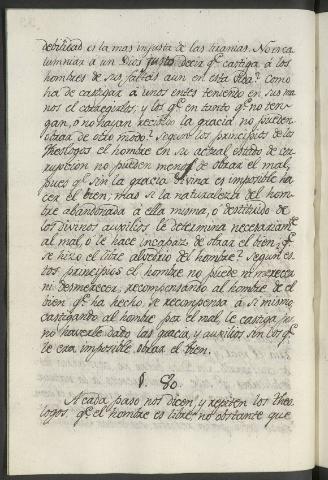 debilidad es la mas injusta de las tiranias. No es ca
lumniar a un Dios justo decir q.e castiga à los
hombres de sus faltas aun en esta vida? Como
ha de castigar à unos entes teniendo en sus ma
nos el corregirlos; y los q.e en tanto q.e no ten-
gan, ó no hayan recibido la gracia no pueden
obrar de otro modo? Segun los principios de los
Theologos el hombre en su actual estado de cor-
rupcion no puede menos de obrar el mal,
pues q.e sin la gracia divina es imposible ha
cer el bien; mas si la naturaleza del hom-
bre abandonada à ella misma, ò destituido de
los divinos auxilios le determina necesariam.te
al mal, ò le hace incapaz de obrar el bien, q.e
se hizo el libre alvedrio del hombre? Segun es-
tos principios el hombre no puede ni merecer
ni desmerecer; recompensando al hombre de el
bien q.e ha hecho, se recompensa à Si mismo;
castigando al hombre por el mal, le castiga por
no haverle dado las gracias y auxilios sin los q.e
le era imposible obrar el bien.
§. 80.
A cada paso nos dicen, y repiten los Theo-
logos, q.e el hombre es libre, no obstante que